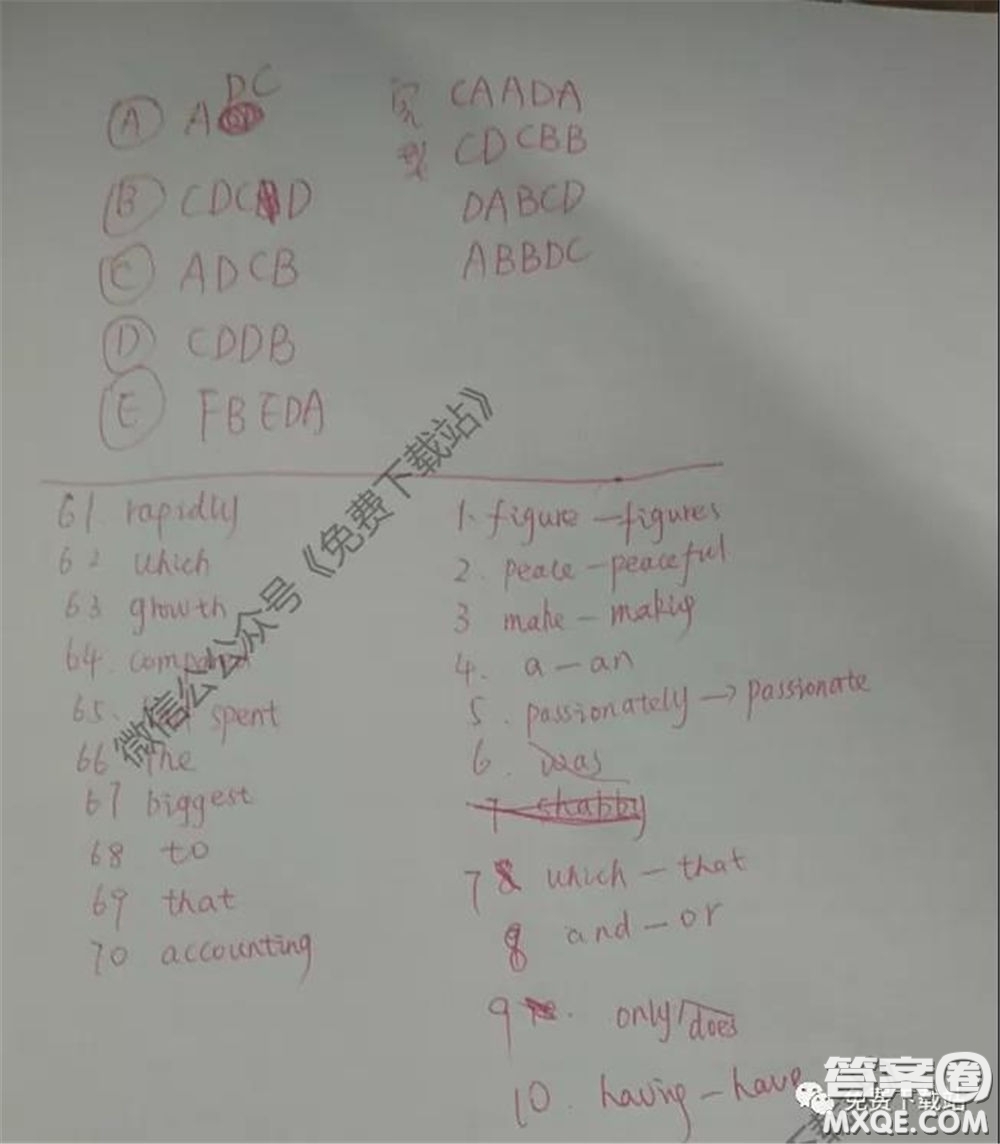 A A DC
B CDCD
C ADCB
D CDDB
E FBEDA
完 CAADA
型 CDCBB
DABCD
ABBDC
61 rapidly
62 which
63 growth
64.
65. spent
66 the
67 biggest
68 to
69 that
70 accounting
1. figure — figures
2. peace — peaceful
3 make — making
4. a — an
5. passionately → passionate
6. was
7 shabby
7 8 which — that
8 and — or
9 only / does
10. having — have
微信公公众号《免费下载站》
答案圈
免费下载站
MXQE.COM